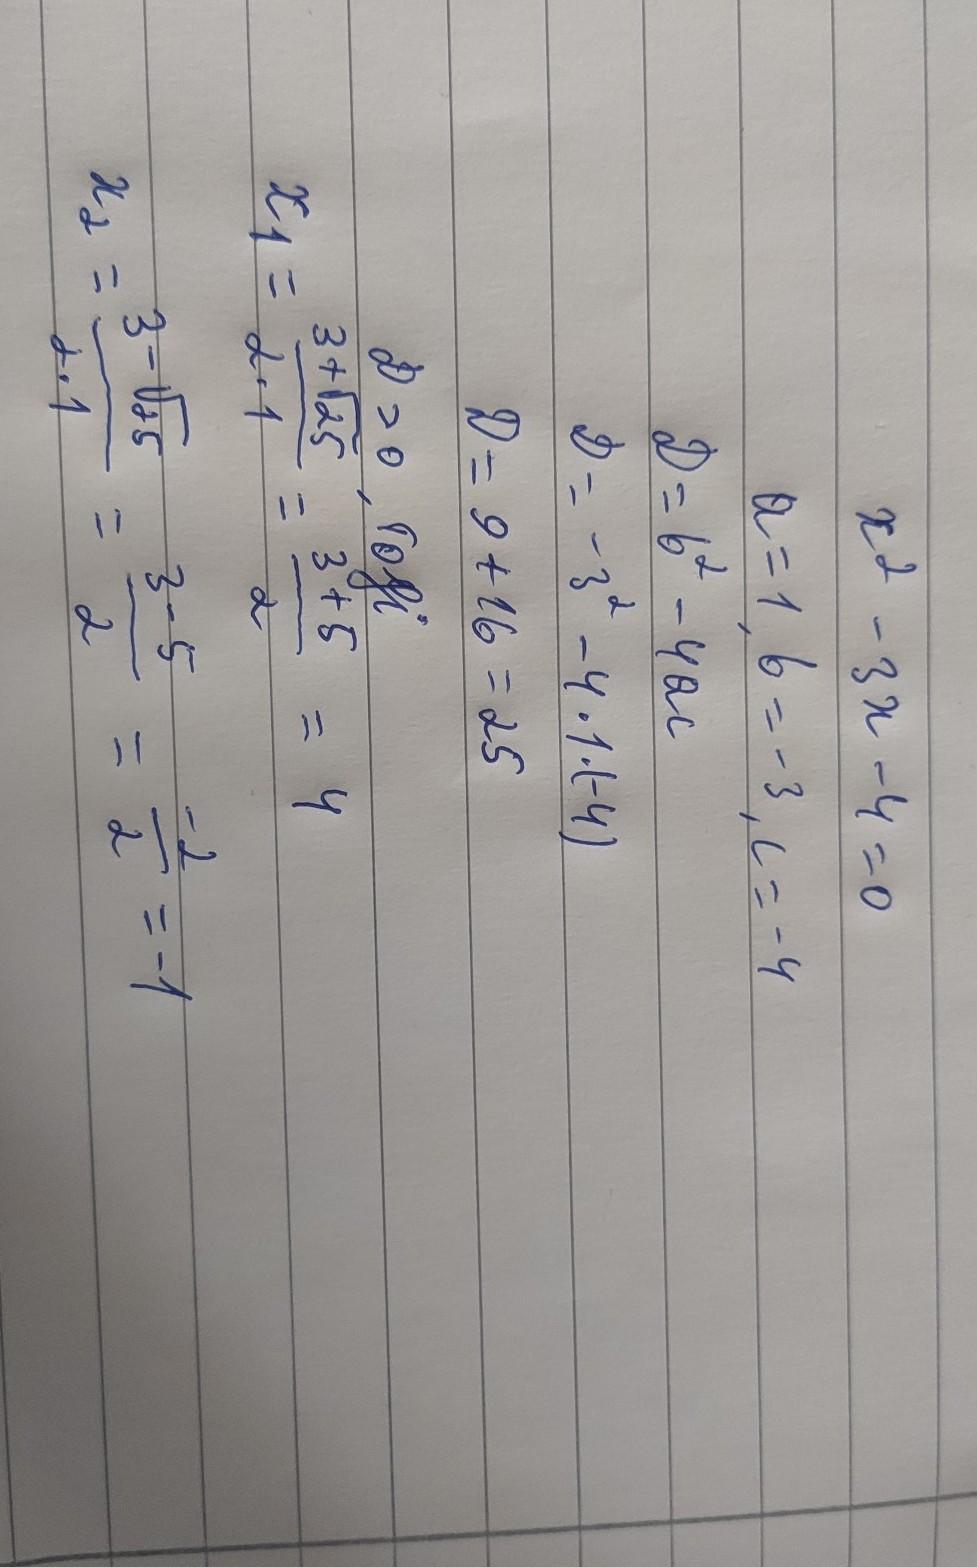 x² - 3x - 4 = 0
a = 1, b = -3, c = -4
D = b² - 4ac
D = -3² - 4 · 1 · (-4)
D = 9 + 16 = 25
D > 0,
x₁ = (3 + √25) / (2 · 1) = (3 + 5) / 2 = 4
x₂ = (3 - √25) / (2 · 1) = (3 - 5) / 2 = -2 / 2 = -1